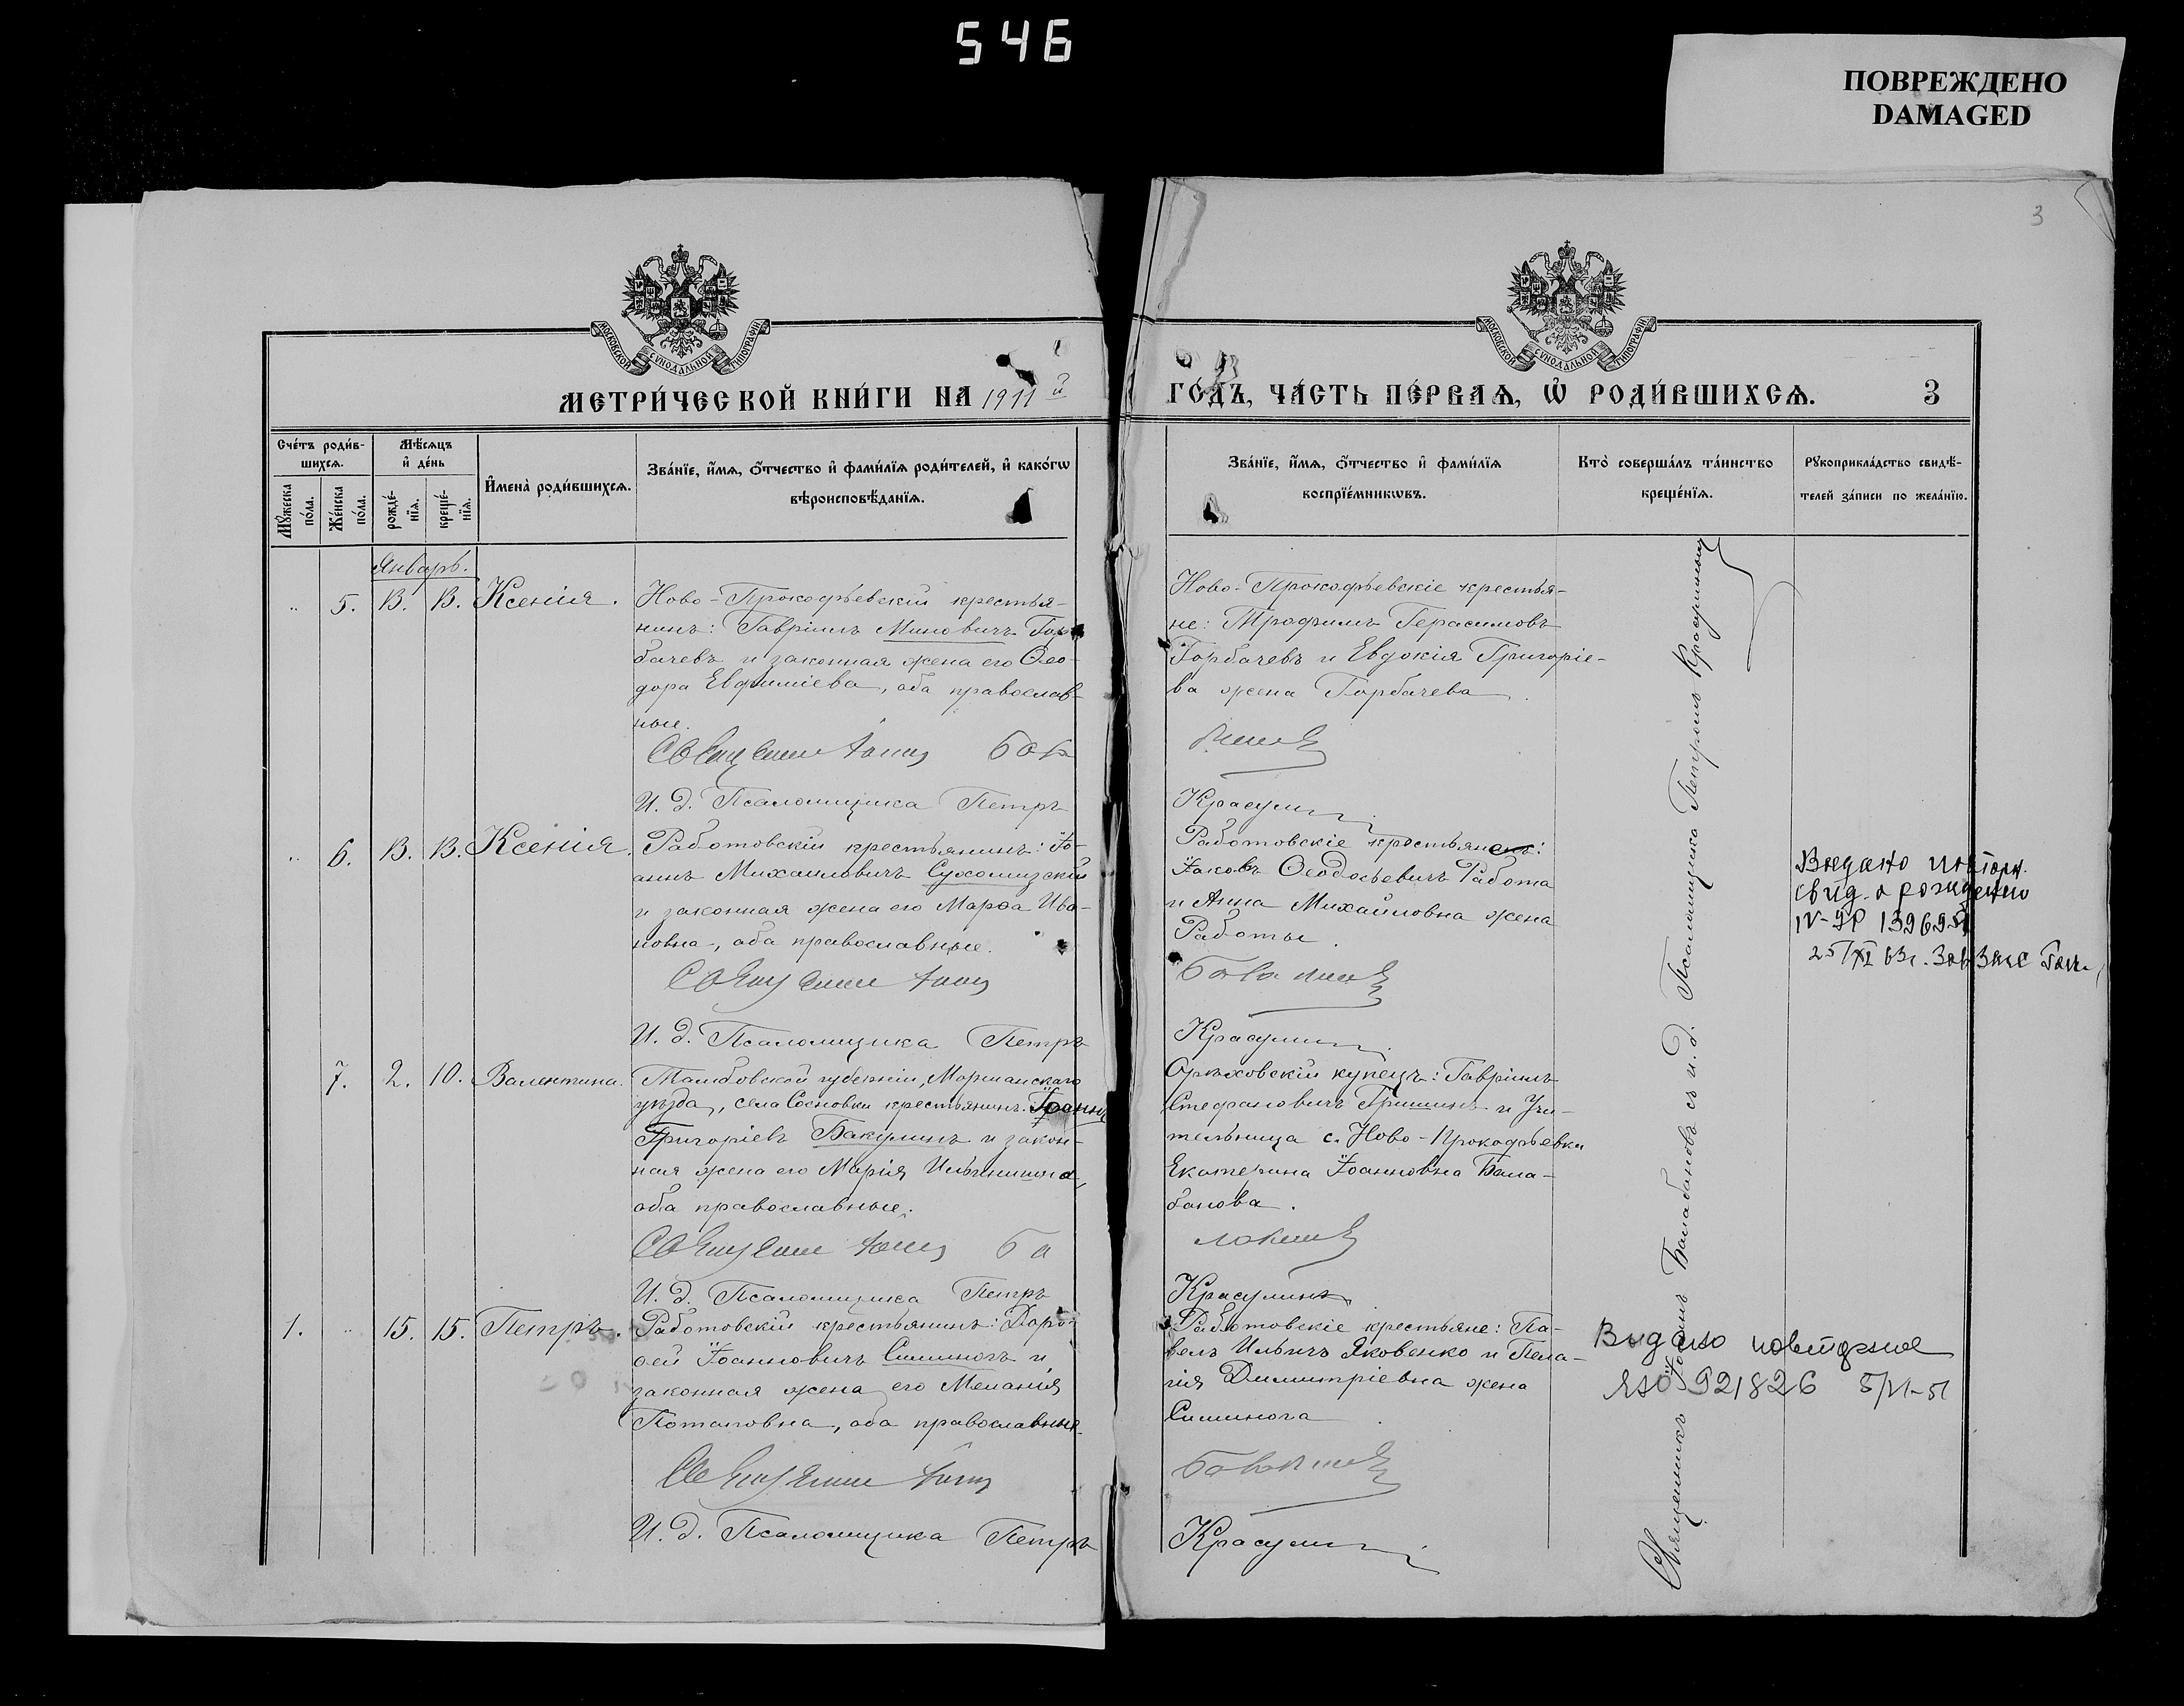 546
ПОВРЕЖДЕНО
DAMAGED
3
МОСКОВСКОЙ СѴНОДАЛЬНОЙ ТИПОГРАФІИ
МОСКОВСКОЙ СѴНОДАЛЬНОЙ ТИПОГРАФІИ
МЕТРИ́ЧЕСКОЙ КНИ́ГИ НА 1911 й
ГО́ДЪ, ЧА́СТЬ ПЕ́РВАѦ, Ѡ РОДИ́ВШИХСѦ. 3
Сче́тъ роди́в-
шихсѧ.
Мꙋ́жеска по́ла.
Же́нска по́ла.
Мѣ́сѧцъ
и де́нь
рожде́-
нїѧ.
креще́-
нїѧ.
Имена̀ роди́вшихсѧ.
Зва́нїе, и́мѧ, о́тчество и фами́лїѧ роди́телей, и како́гѡ
вѣроисповѣ́данїѧ.
Зва́нїе, и́мѧ, о́тчество и фами́лїѧ
воспрїе́мникѡвъ.
Кто̀ соверша́лъ та́инство
креще́нїѧ.
Рꙋкоприкла́дство свидѣ́-
телей за́писи по жела́нїю.
Январь.
„ 5. 13. 13. Ксенія.
Ново-Прокофьевскій крестья-
нинъ: Гавріилъ Миновичъ Гор-
бачевъ и законная жена его Ѳео-
дора Евфиміева, оба православ-
ные.
Священникъ Іоаннъ Бала
И. д. Псаломщика Петръ
Ново-Прокофьевскіе крестья-
не: Трофимъ Герасимовъ
Горбачевъ и Евдокія Григоріе-
ва жена Горбачева.
Красулинъ
„ 6. 13. 13. Ксенія.
Работовскій крестьянинъ: Іо-
аннъ Михаиловичъ Сухомизскій
и законная жена его Марѳа Ива-
новна, оба православные.
Священникъ Іоаннъ
И. д. Псаломщика Петръ
Работовскіе крестьяне:
Іаковъ Ѳеодосьевичъ Работа
и Анна Михайловна жена
Работы.
Балабановъ
Красулинъ
Выдано повторн.
свид. о рождении
25/XI 63г.
7. 2. 10. Валентина.
Тамбовской губерніи, Моршанскаго
уѣзда, села Сосновки крестьянинъ: Іоаннъ
Григоріевъ Бакулинъ и закон-
ная жена его Марія Ильинична,
оба православные.
Священникъ Іоаннъ Ба
И. д. Псаломщика Петръ
Орѣховскій купецъ: Гавріилъ
Стефановичъ Гришинъ и Учи-
тельница с. Ново-Прокофьевки
Екатерина Іоанновна Бала-
банова.
лабановъ
Красулинъ
1. „ 15. 15. Петръ.
Работовскій крестьянинъ: Доро-
ѳей Іоанновичъ Сининогъ и
законная жена его Меланія
Потаповна, оба православные.
Священникъ Іоаннъ
И. д. Псаломщика Петръ
Работовскіе крестьяне: Па-
велъ Ильичъ Яковенко и Пела-
гія Димитріевна жена
Сининога
Балабановъ
Красулинъ
Священникъ Іоаннъ Балабановъ съ и. д. Псаломщика Петромъ Красулинымъ
Выдано повторное
ЯЮ 921826 5/VI-51